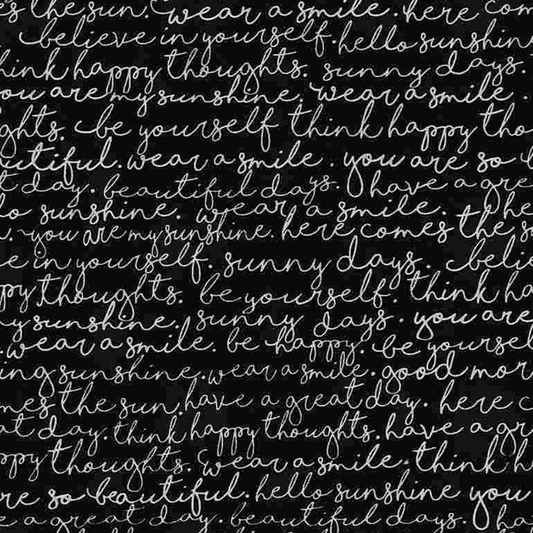 s the sun. wear a smile. here com
believe in yourself. hello sunshin
hink happy thoughts. sunny days.
ou are my sunshine. wear a smile.
ghts. be yourself think happy tho
utiful. wear a smile. you are so
t day. beautiful days. have a gre
lo sunshine. wear a smile. he
. you are my sunshine. here comes the s
e in yourself. sunny days. believ
py thoughts. be yourself. think ha
y sunshine. sunny days. you are
. wear a smile. be happy. be yoursel
ing sunshine. wear a smile. good mor
mes the sun. have a great day. here c
at day. think happy thoughts. have a gr
ppy thoughts. wear a smile. think h
re so beautiful. hello sunshine you
e a great day. beautiful days. ha